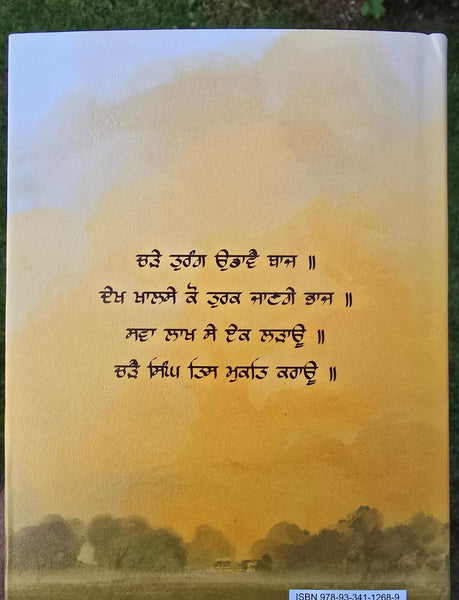 ਚੜੇ ਤੁਰੰਗ ਉਡਾਵੈ ਬਾਜ ॥
ਦੇਖ ਖਾਲਸੇ ਕੋ ਤੁਰਕ ਜਾਣਗੇ ਭਾਜ ॥
ਸਵਾ ਲਾਖ ਸੇ ਏਕ ਲੜਾਊ ॥
ਚੜੈ ਸਿੰਘ ਤਿਸ ਮੁਕਤਿ ਕਰਾਊ ॥
ISBN 978-93-341-1268-9